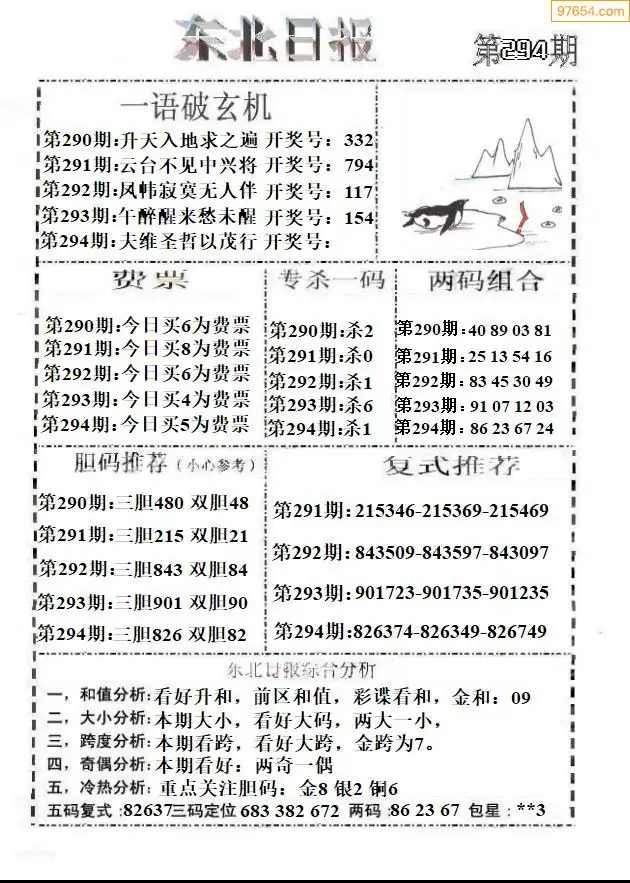 97654.com
东北日报
第294期
一语破玄机
第290期:升天入地求之遍 开奖号: 332
第291期:云台不见中兴将 开奖号: 794
第292期:凤帏寂寞无人伴 开奖号: 117
第293期:午醉醒来愁未醒 开奖号: 154
第294期:夫维圣哲以茂行 开奖号:
费票
第290期:今日买6为费票
第291期:今日买8为费票
第292期:今日买6为费票
第293期:今日买4为费票
第294期:今日买5为费票
专杀一码
第290期:杀2
第291期:杀0
第292期:杀1
第293期:杀6
第294期:杀1
两码组合
第290期:40 89 03 81
第291期:25 13 54 16
第292期:83 45 30 49
第293期:91 07 12 03
第294期:86 23 67 24
胆码推荐(小心参考)
第290期:三胆480 双胆48
第291期:三胆215 双胆21
第292期:三胆843 双胆84
第293期:三胆901 双胆90
第294期:三胆826 双胆82
复式推荐
第291期:215346-215369-215469
第292期:843509-843597-843097
第293期:901723-901735-901235
第294期:826374-826349-826749
东北日报综合分析
一, 和值分析:看好升和, 前区和值, 彩谍看和, 金和: 09
二、大小分析:本期大小, 看好大码, 两大一小,
三, 跨度分析:本期看跨, 看好大跨, 金跨为7。
四, 奇偶分析:本期看好: 两奇一偶
五, 冷热分析:重点关注胆码: 金8 银2 铜6
五码复式:82637三码定位 683 382 672 两码:86 23 67 包星: **3